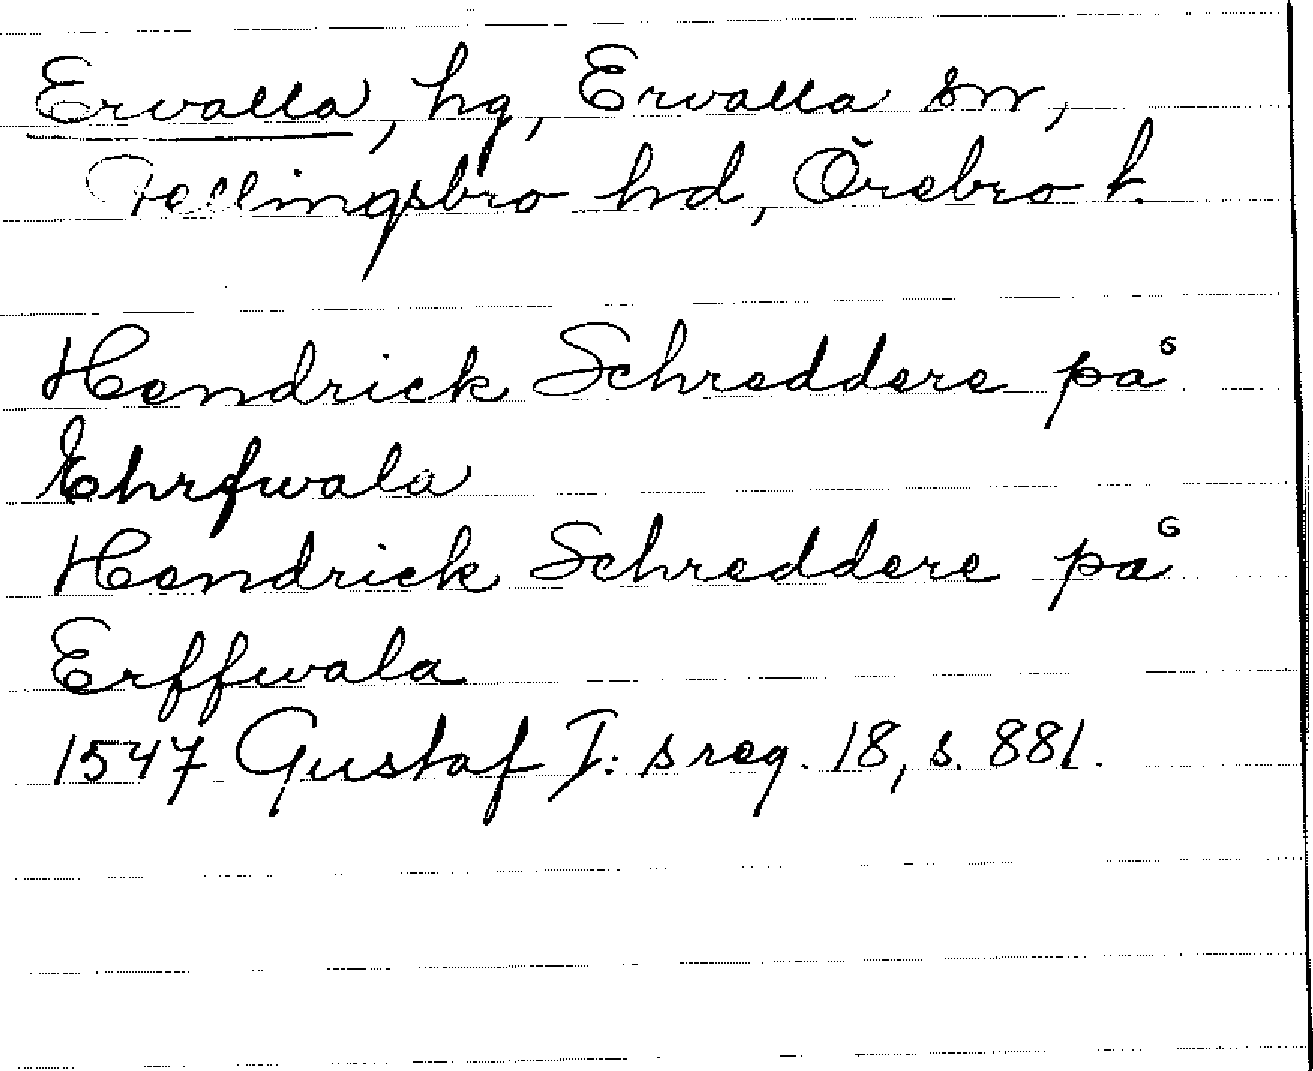 Ervalla, hg, Ervalla sn,
Fellingsbro hd, Örebro l.
Hendrick Schreddere på
Ehrfwala
Hendrick Schreddere på
Erffwala
1547 Gustaf I:s reg. 18, s. 881.